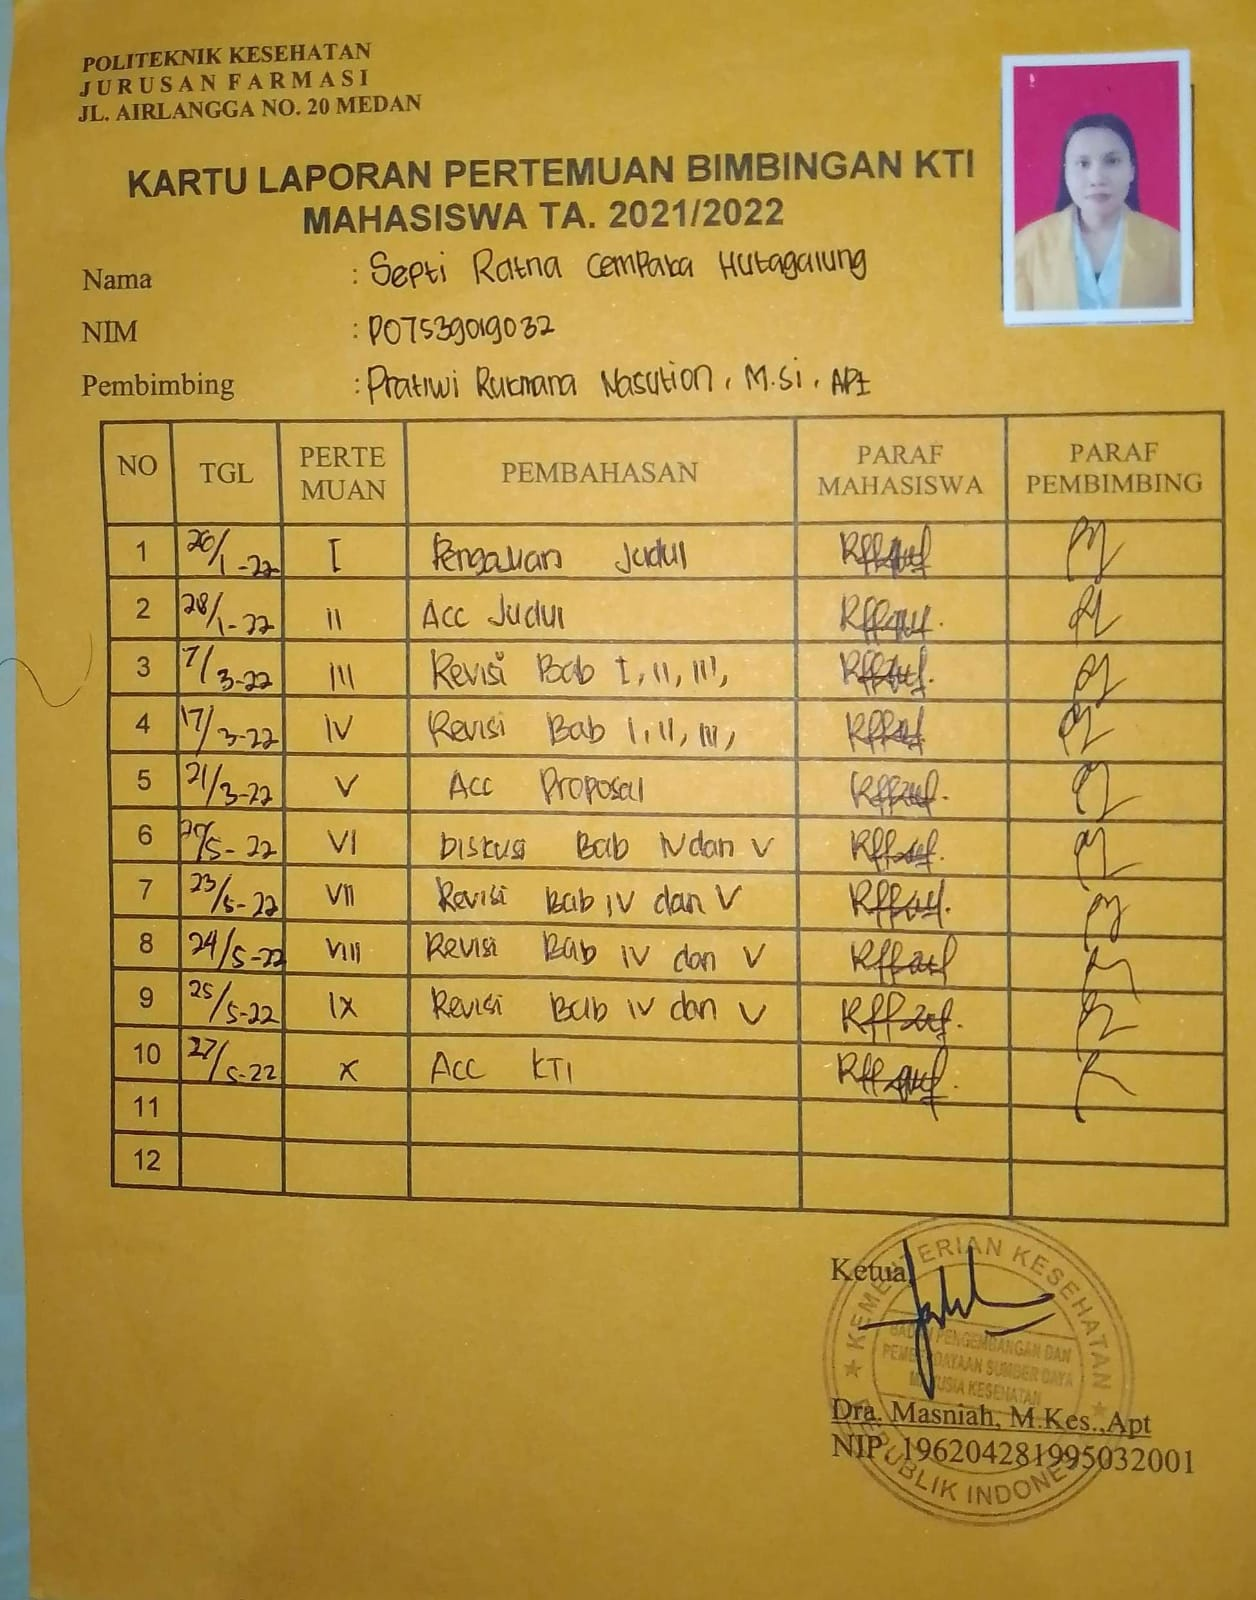 POLITEKNIK KESEHATAN
JURUSAN FARMASI
JL. AIRLANGGA NO. 20 MEDAN
KARTU LAPORAN PERTEMUAN BIMBINGAN KTI
MAHASISWA TA. 2021/2022
Nama : Septi Ratna Cempaka Hutagalung
NIM : P07539019032
Pembimbing : Pratiwi Rukmana Nasution, M.Si, APt
NO TGL PERTE MUAN PEMBAHASAN PARAF MAHASISWA PARAF PEMBIMBING
1 20/1-22 I Pengajuan Judul
2 28/1-22 II Acc Judul
3 7/3-22 III Revisi Bab I, II, III,
4 17/3-22 IV Revisi Bab I, II, III,
5 21/3-22 V Acc Proposal
6 VI Diskusi Bab IV dan V
7 23/5-22 VII Revisi Bab IV dan V
8 24/5-22 VIII Revisi Bab IV dan V
9 25/5-22 IX Revisi Bab IV dan V
10 27/5-22 X Acc KTI
11
12
Ketua,
KEMENTERIAN KESEHATAN
BADAN PENGEMBANGAN DAN
PEMBERDAYAAN SUMBER DAYA
MANUSIA KESEHATAN
REPUBLIK INDONESIA
Dra. Masniah, M.Kes.,Apt
NIP. 196204281995032001